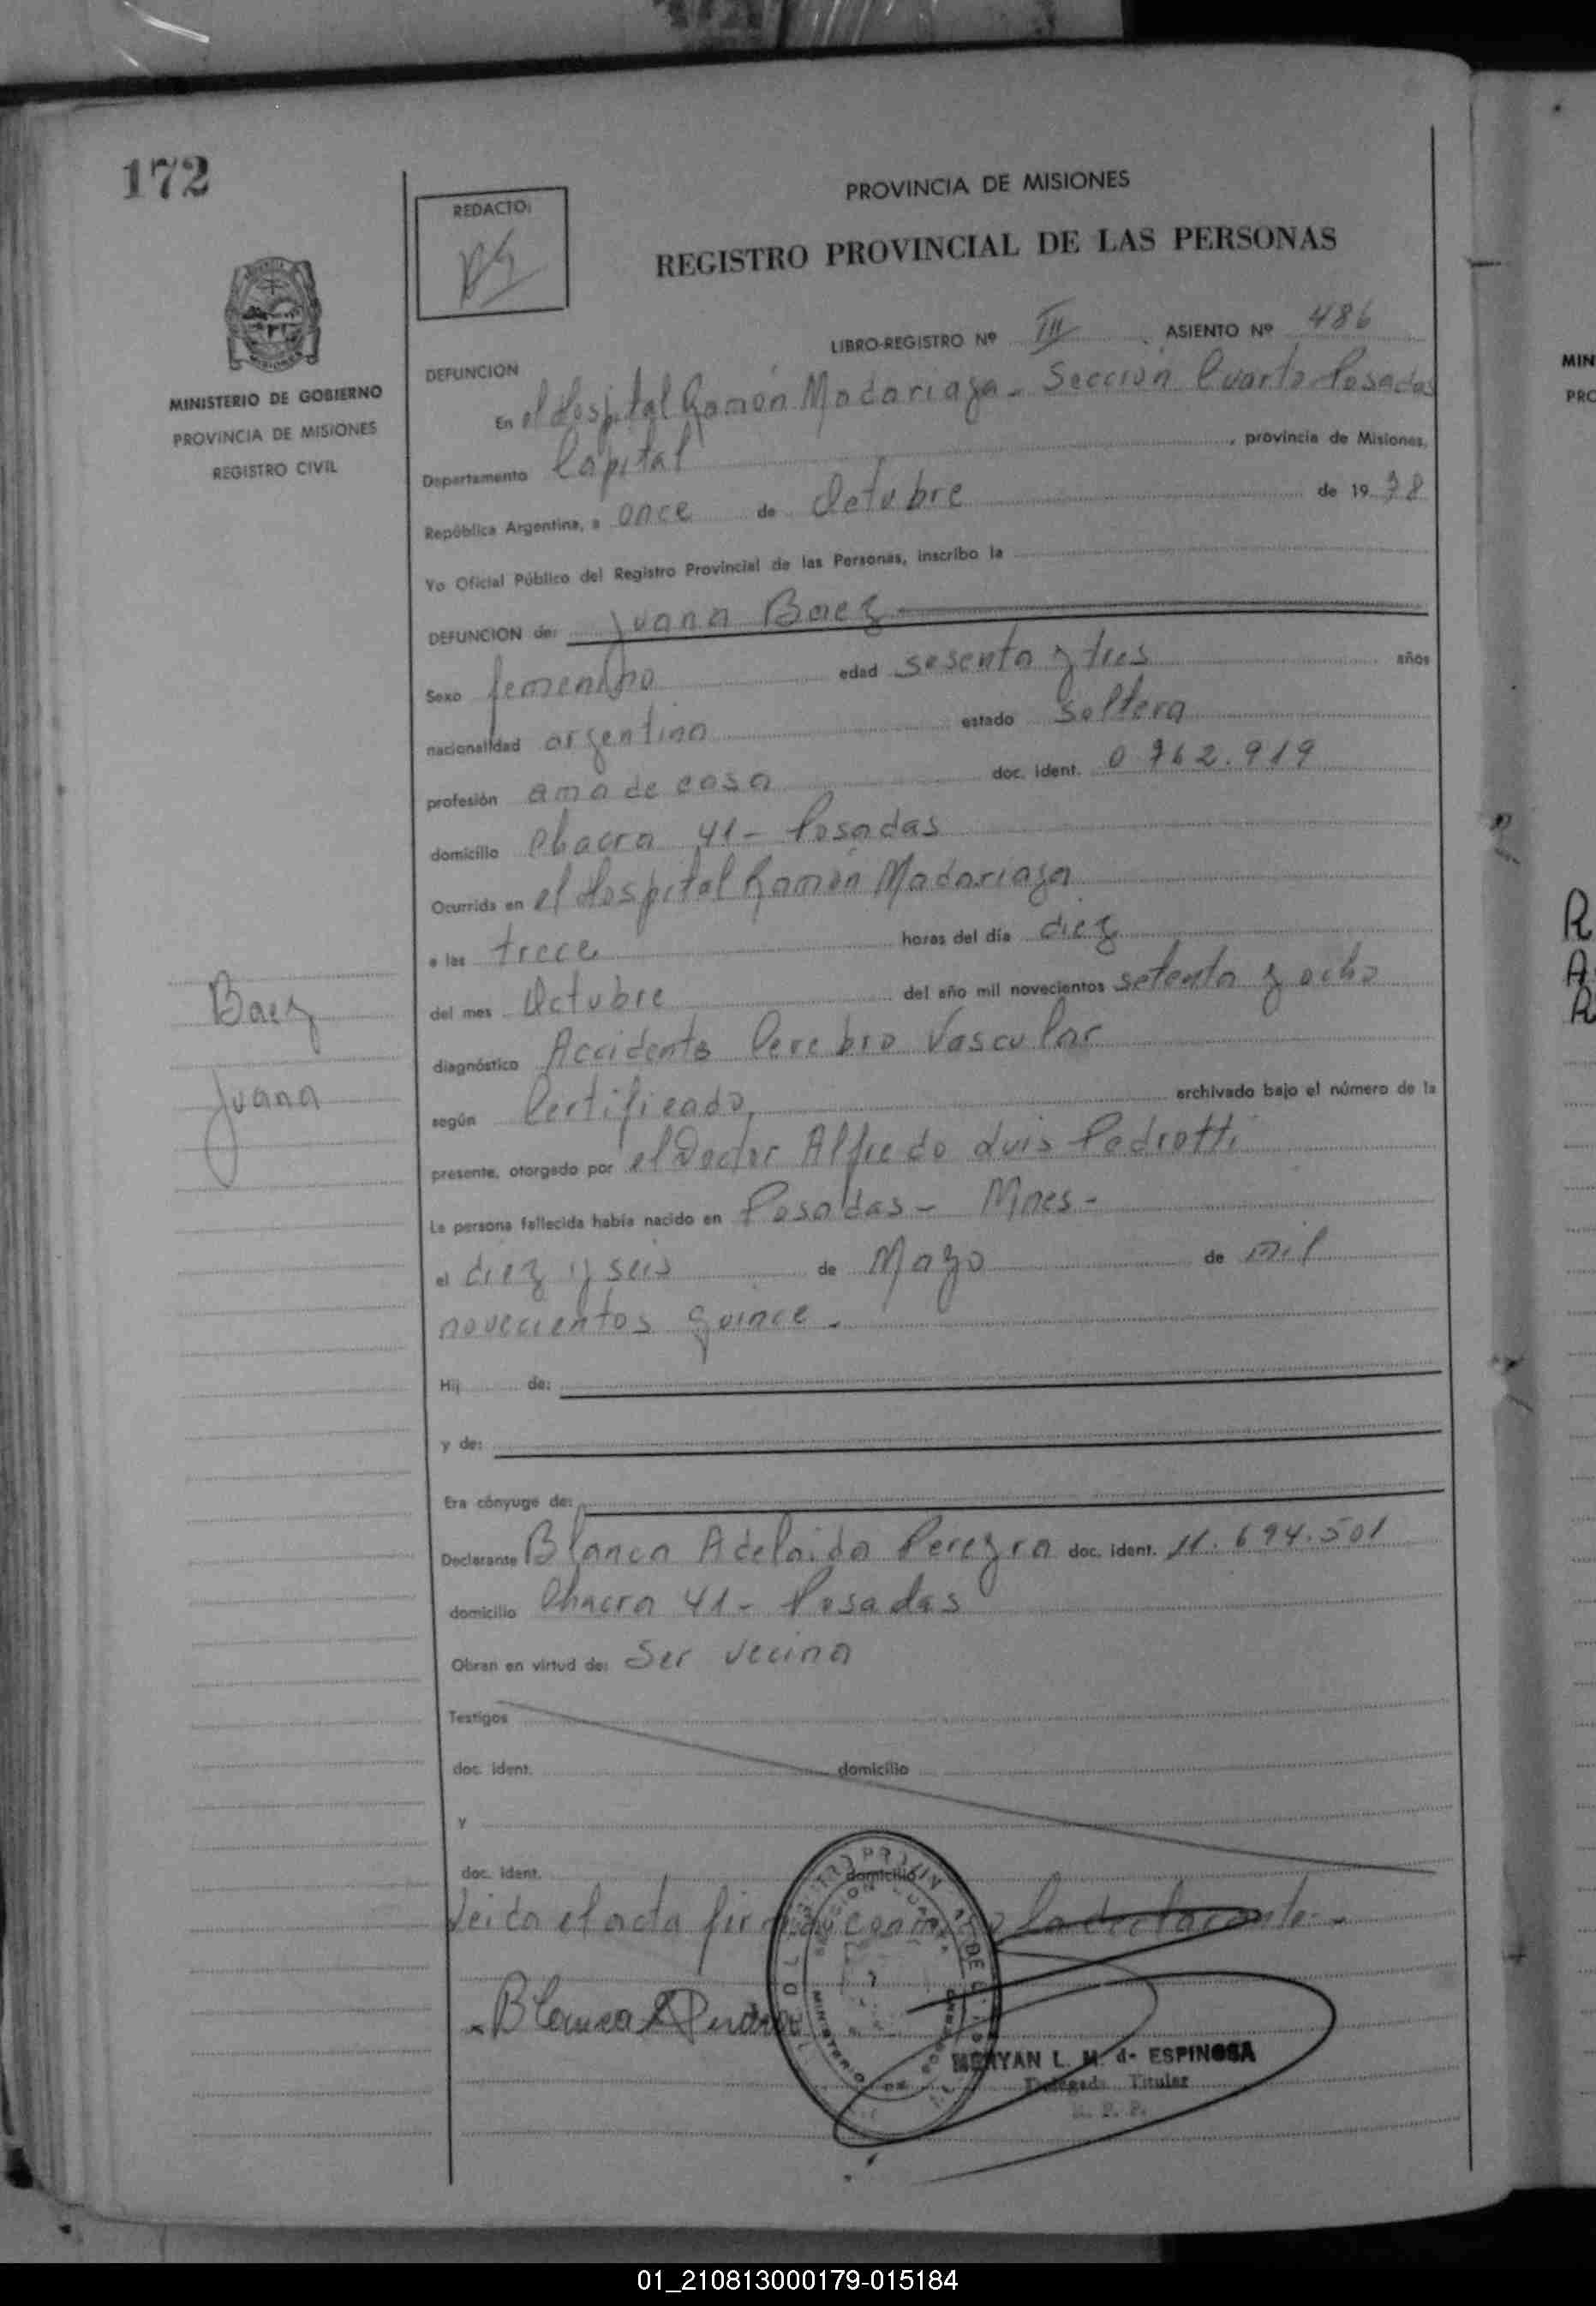 172
REDACTO:
PROVINCIA DE MISIONES
REGISTRO PROVINCIAL DE LAS PERSONAS
MINISTERIO DE GOBIERNO
PROVINCIA DE MISIONES
REGISTRO CIVIL
LIBRO-REGISTRO Nº III ASIENTO Nº 486
DEFUNCION
En el Hospital Ramón Madariaga - Sección Cuarta - Posadas
Departamento Capital, provincia de Misiones,
República Argentina, a once de Octubre de 1978
Yo Oficial Público del Registro Provincial de las Personas, inscribo la
DEFUNCION de: Juana Baez
Sexo femenino edad sesenta y tres años
nacionalidad argentina estado soltera
profesión ama de casa doc. ident. 0.762.919
domicilio Chacra 41 - Posadas
Ocurrida en el Hospital Ramón Madariaga
a las trece horas del día diez
del mes Octubre del año mil novecientos setenta y ocho
diagnóstico Accidente Cerebro Vascular
según Certificado, archivado bajo el número de la
presente, otorgado por el Doctor Alfredo Luis Pedrotti
La persona fallecida había nacido en Posadas - Mnes -
el diez y seis de Mayo de mil
novecientos quince -
Hij de:
y de:
Era cónyuge de:
Declarante Blanca Adelaida Pereyra doc. ident. 11.694.501
domicilio Chacra 41 - Posadas
Obran en virtud de: Ser vecina
Testigos
doc. ident. domicilio
y
doc. ident. domicilio
Leida el acta la declarante -
Blanca A
MERYAN L. M. de ESPINOSA
Delegada Titular
R. P. P.
Baez
Juana
MIN
PRO
R
A
R
01_210813000179-015184